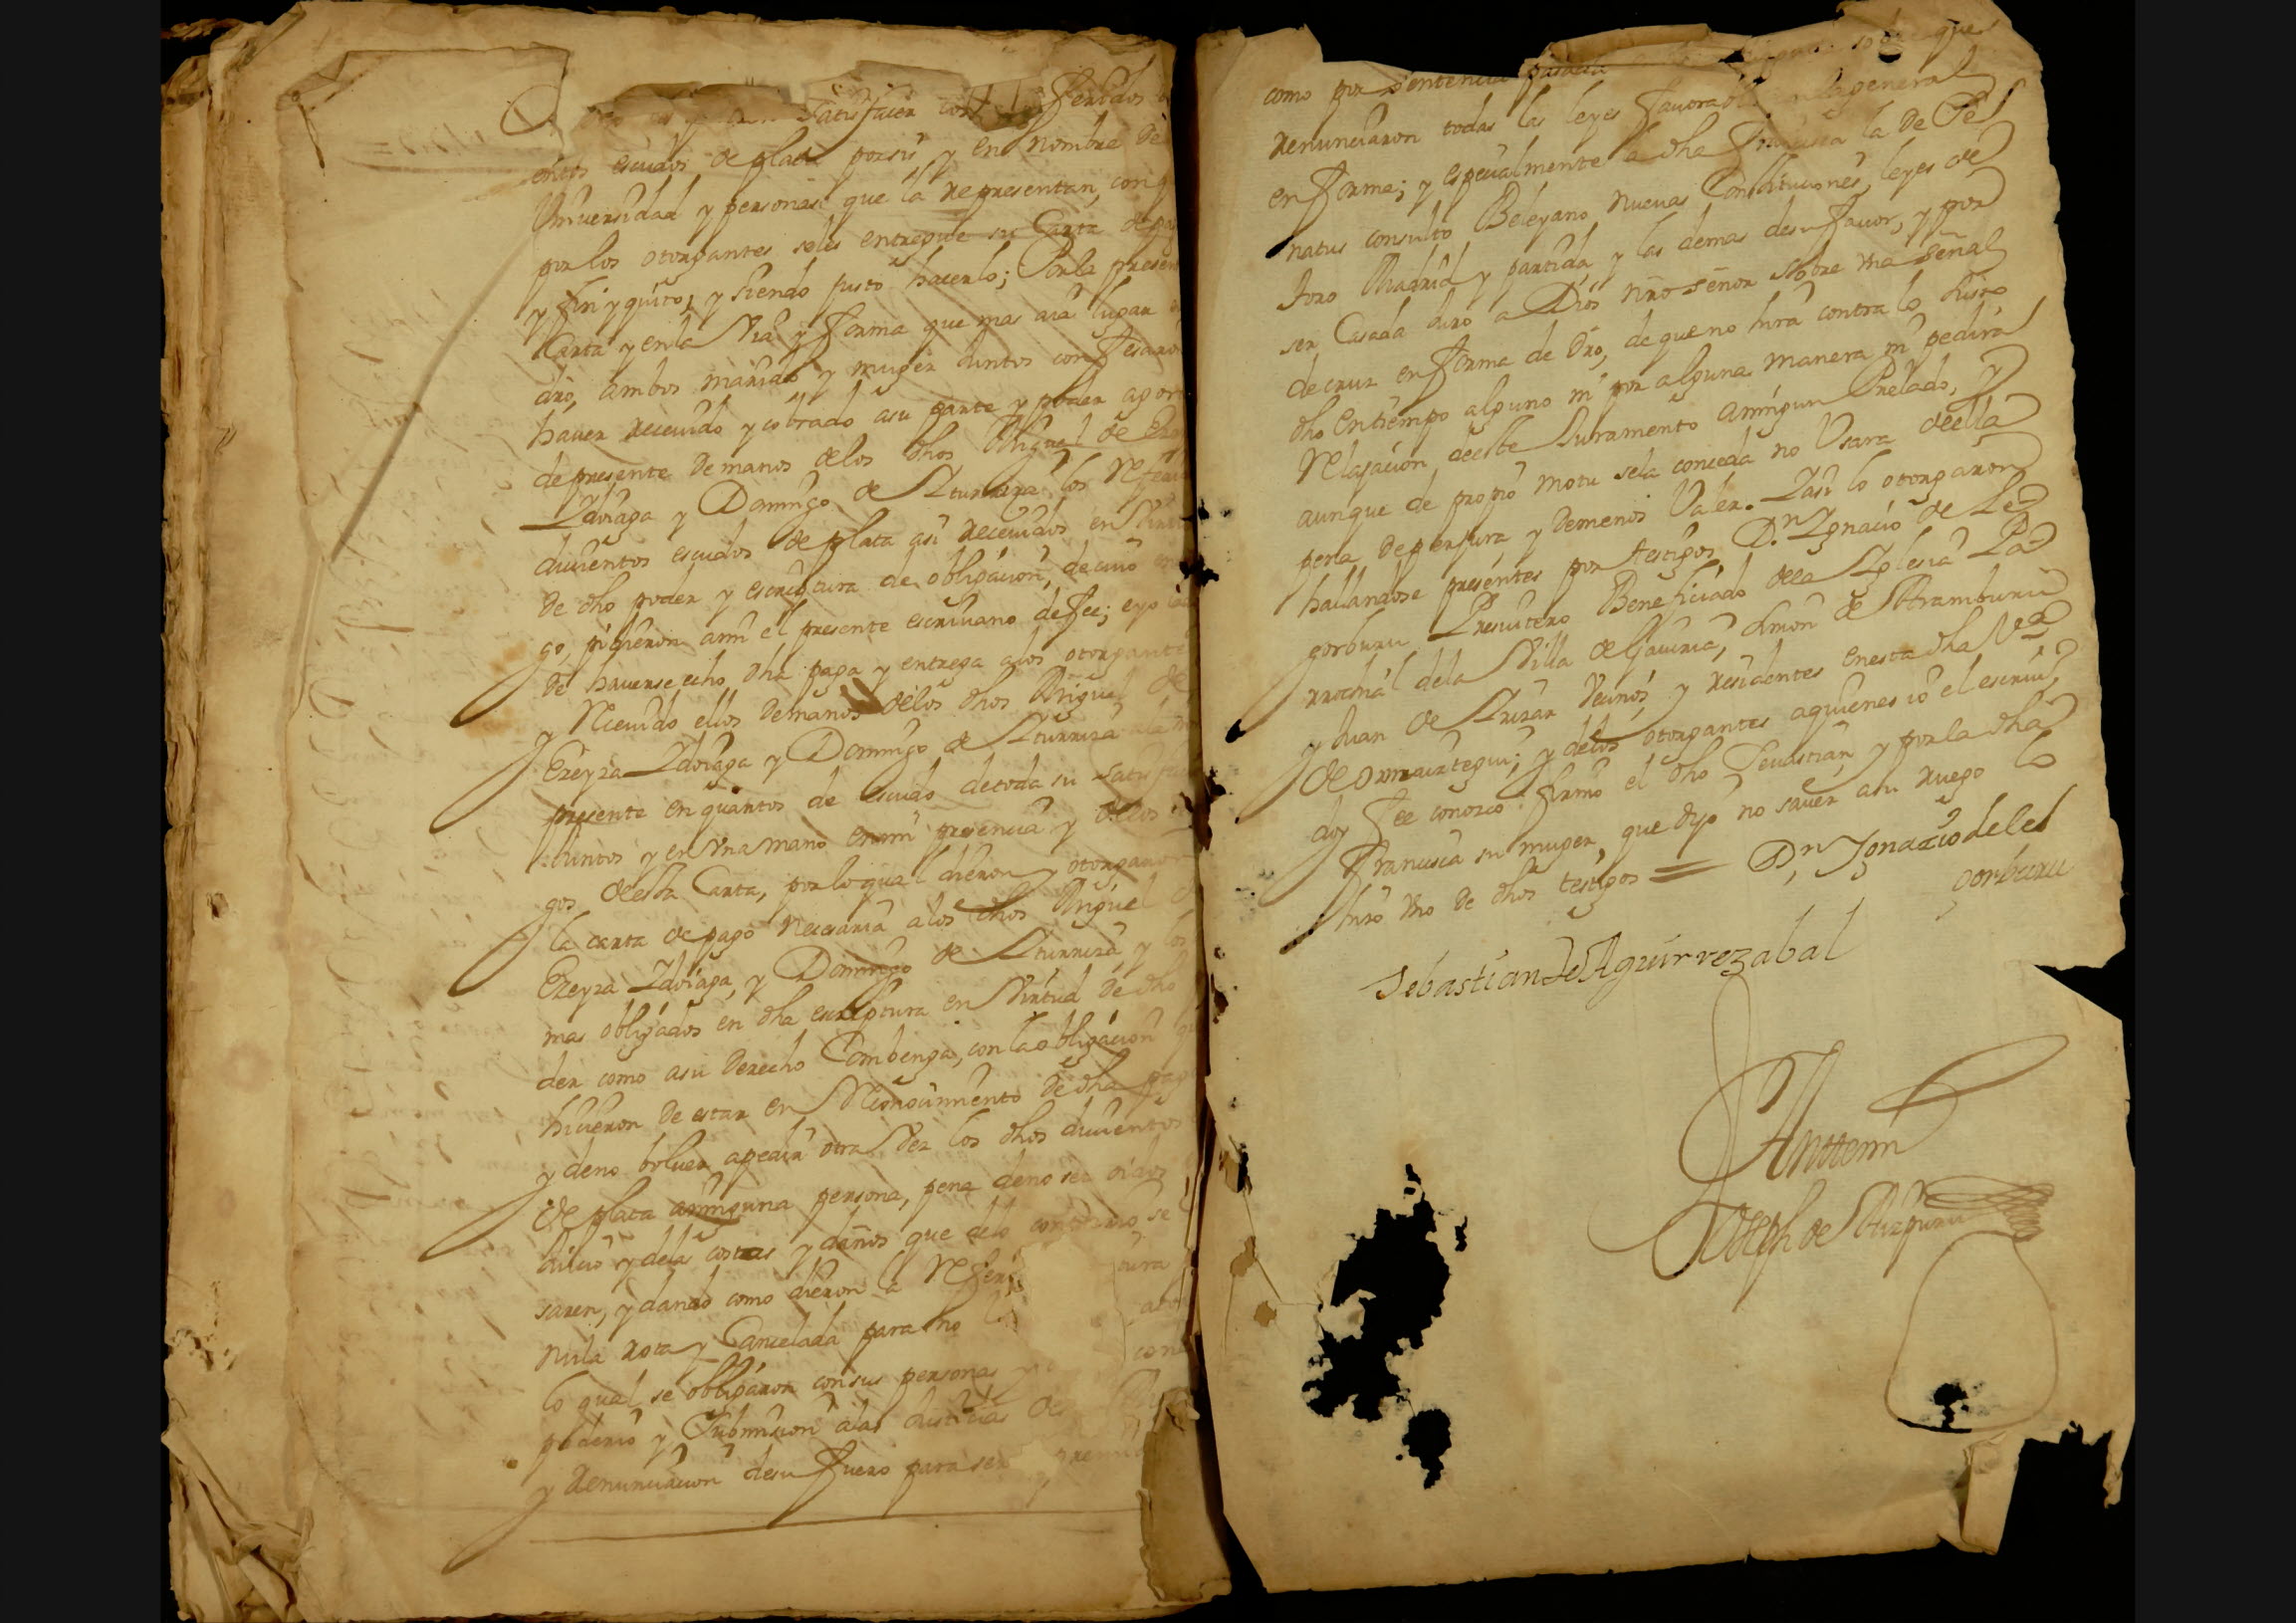 satisfacer los referidos
entos escudos de plata por si y en nombre de
Vniuersidad y personas que la representan, con
por los otorgantes seles entregue su Carta de pa
y finyquito; y siendo justo hacerlo; Por la presen
Carta y en la via y forma que mas aia lugar
dro, ambos marido y muger Juntos confesaron
hauer receuido y cobrado asu parte y poder agora
de presente de manos delos dhos Miguel de
Ydiaga y Domingo de Yturriza los refe
ducientos escudos de plata asi receuidos en virtud
de dho poder y escriptura de obligacion, de cuio
go, pidieron ami el presente escriuano de fee; eyo
de hauerse echo dha paga y entrega alos otorgante
y Receuido ellos de manos delos dhos Miguel de
Ezeyza Ydiaga y Domingo de Yturriza
presente en quartos de escudo de toda su satisfa
Juntos y en vna mano en mi presencia y delos
gos desta Carta, por lo qual dieron y otorgaron
la carta de pago necesaria a los dhos Miguel
Ezeyza Ydiaga, y Domingo de Yturriza, y los
mas obligados en dha escriptura en virtud de dho
der como asu derecho Combenga, con la obligacion
hicieron de estar en Reconocimiento de dha paga
y de no boluer a pedir otra vez los dhos ducientos
de plata aninguna persona, pena de no ser oidos
Juicio y delas costas y daños que delo contrario se
saren, y dando como dieron la Refer
nula rota y Cancelada para no
Lo qual se obligaron con sus personas y
poderio y Submision alas Justicias de
y renunciacion de su fuero para ser
como por sentencia pasada sobre que
renunciaron todas las leyes fauora general
en forma; y especialmente a dha francisca la de Se
natus consulto Beleyano nueuas Constituciones, leyes de
Toro Madrid y partida, y las demas de su fauor, y por
ser Casada Juro a Dios nro señor sobre vna señal
de cruz en forma de dro, de que no hira contra lo suso
dho en tiempo alguno ni por alguna manera ni pedira
Relajacion deeste Juramento aningun Prelado, y
aunque de propio motu sela conceda no Vsara della
pena de perjura y de menos Valer. Y asi lo otorgaron
hallandose presentes por testigos Dn. Ygnacio de Le
gorburu Presuitero Beneficiado dela Yglesia Pa
rrochial dela Villa de Gauiria, Simon de Aramburu
y Juan de Arizar vecinos, y residentes enesta dha Va
de Ormaiztegui; y delos otorgantes aquienes io el escriuo
doy fee conozco firmo el dho Seuastian y por la dha
francisca su muger, que dijo no sauer asu ruego lo
hizo vno de dhos testigos =
Dn, Ignacio de Le
gorburu
Sebastian de Aguirrezabal
Anttemi
Joseph de Aizpuru